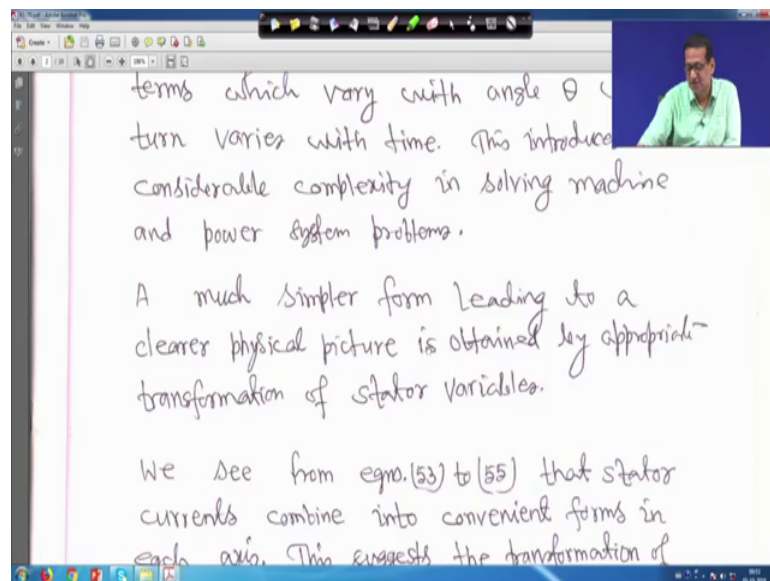 File Edit View Window Help
Create
terms which vary with angle θ
turn varies with time. This introduce
considerable complexity in solving machine
and power system problems.
A much simpler form leading to a
clearer physical picture is obtained by appropriate
transformation of stator variables.
We see from eqns.(53) to (55) that stator
currents combine into convenient forms in
each axis. This suggests the transformation of